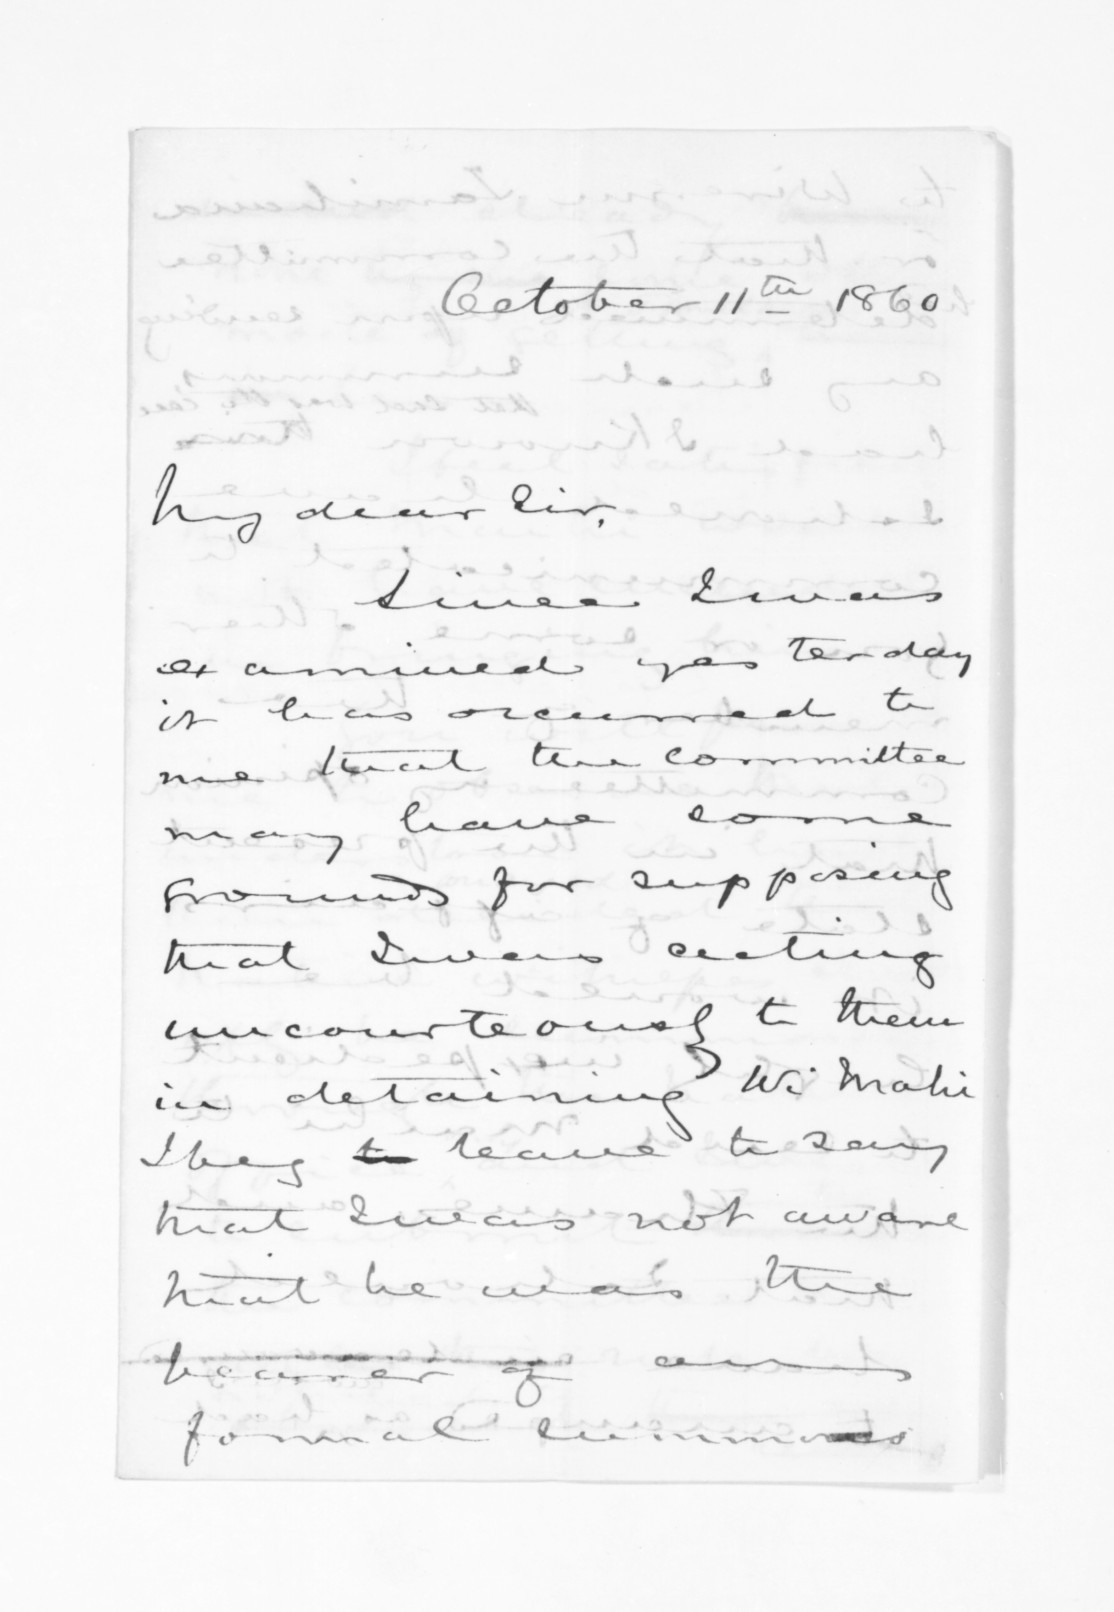 October 11th 1860
My dear Sir,
Since I was
examined yesterday
it has occurred to
me that the committee
may have some
grounds for supposing
that I was acting
uncourteously to them
in detaining Wi
I beg to leave to say
that I was not aware
that he was the
bearer of any
formal summons